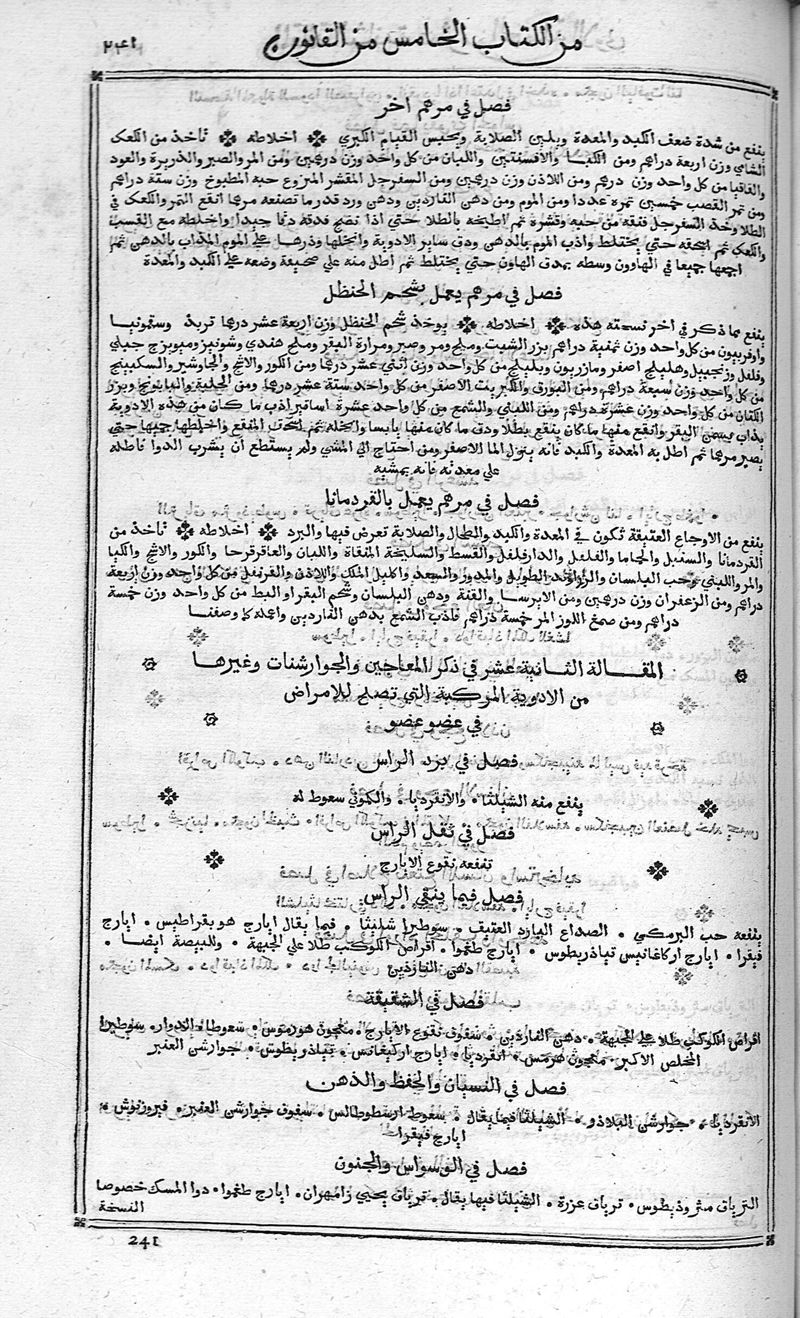 من الكتاب الخامس من القانون
٢٤١
فصل في مرهم اخر
ينفع من شدة ضعف الكبد والمعدة ويلين الصلابة ويحبس القيام الكبدي ❊ اخلاطه ❊ تأخذ من الكعك
الشامي وزن اربعة دراهم ومن الكيا والافسنتين واللبان من كل واحد وزن درهمين ومن المر والصبر والذريرة والعود
والقاقيا من كل واحد وزن درهم ومن اللاذن وزن درهمين ومن السفرجل المقشر المنزوع حبه المطبوخ وزن ستة دراهم
ومن تمر القصب خمسين تمرة عددا ومن الموم ومن دهن الناردين ودهن ورد قدر ما تصنعه مرهما انقع التمر والكعك في
الطلا وخذ السفرجل فنقه من حبه وقشره ثم اطبخه بالطلا حتي اذا نضج فدقه دقا جيدا واخلطه مع القسب
والكعك ثم اسحقه حتي يختلط واذب الموم بالدهن ودق ساير الادوية وانخلها وذرها علي الموم المذاب بالدهن ثم
اجعها جميعا في الهاوون وسطه بمدق الهاون حتي يختلط ثم اطل منه علي صحيفة وضعه علي الكبد والمعدة
فصل في مرهم يعمل بشحم الحنظل
ينفع مما ذكر في اخر نسخته هذه ❊ اخلاطه ❊ يوخذ شحم الحنظل وزن اربعة عشر درهما تربد وسقمونيا
وافربيون من كل واحد وزن ثمنية دراهم بزر الشبت وملح ومر وصبر ومرارة البقر وملح هندي وشونيز وميويزج جبلي
وفلفل وزنجبيل وهليلج اصفر ومازريون وبليلج من كل واحد وزن اثني عشر درهما ومن الكور والاشج والجاوشير والسكبينج
من كل واحد وزن سبعة دراهم ومن البورق والكبريت الاصفر من كل واحد ستة عشر درهما ومن الحلبة والبابونج وبزر
الكتان من كل واحد وزن عشرة دراهم ومن اللبني والشمع من كل واحد عشرة اساتير اذب ما كان من هذه الادوية
يذاب بسمن البقر وانقع منها ما كان ينقع بطلا ودق ما كان منها يابسا وانخله ثم اسحق المنقع واخلطها جميعا حتي
يصير مرهما ثم اطل به المعدة والكبد فانه ينزل الما الاصفر ومن احتاج الي المشي ولم يستطع ان يشرب الدوا فاطله
علي معدته فانه يمشيه
فصل في مرهم يعمل بالقردمانا
ينفع من الاوجاع العتيقة تكون في المعدة والكبد والطحال والصلابة تعرض فيها والبرد ❊ اخلاطه ❊ تأخذ من
القردمانا والسنبل والحماما والفلفل والدارفلفل والقسط والسليخة المنقاة واللبان والعاقرقرحا والكور والاشج والكيا
والمر واللبني وحب البلسان والزراوند الطويل والمدور والسعد واكليل الملك واللاذن والقرنفل من كل واحد وزن اربعة
دراهم ومن الزعفران وزن درهمين ومن الايرسا والقنة ودهن البلسان وشحم البقر او البط من كل واحد وزن خمسة
دراهم ومن صمغ اللوز المر خمسة دراهم فاذب الشمع بدهن الناردين واعمله كما وصفنا
المقالة الثانية عشر في ذكر المعاجين والجوارشنات وغيرها
من الادوية المركبة التي تصلح للامراض
في عضو عضو
فصل في برد الراس
ينفع منه الشيلثا • والانقرديا • والكموني سعوط له
فصل في ثقل الراس
تنفعه نقوع الايارج
فصل فيما ينقي الراس
ينفعه حب البرمكي • الصداع البارد العتيق • سوطيرا شليثا • فيما يقال ايارج هو بقراطيس • ايارج
فيقرا • ايارج اركاغانيس تياذريطوس • ايارج طغموا • اقراص الكوكب طلا علي الجبهة • وللبيضة ايضا •
دهن الناردين
فصل في الشقيقة
اقراص الكوكب طلا علي الجبهة • دهن الناردين • سفوف نقوع الايارج • معجون هورموس • سعوطا • للدوار • سوطيرا
المخلص الاكبر • معجون هرمس • انقرديا • ايارج اركيغانس • تياذريطوس • جوارشن العنبر
فصل في النسيان والحفظ والذهن
الانقرديا • جوارشن البلاذر • الشيلثا فيما يقال • سعوط ارسطوطالس • سفوف جوارشن العنبر • فيروزنوش •
ايارج فيقرا
فصل في الوسواس والجنون
الترياق مثروذيطوس • ترياق عزرة • الشيلثا فيها يقال • ترياق يحيي زامهران • ايارج طغموا • دوا المسك خصوصا
النسخة
241